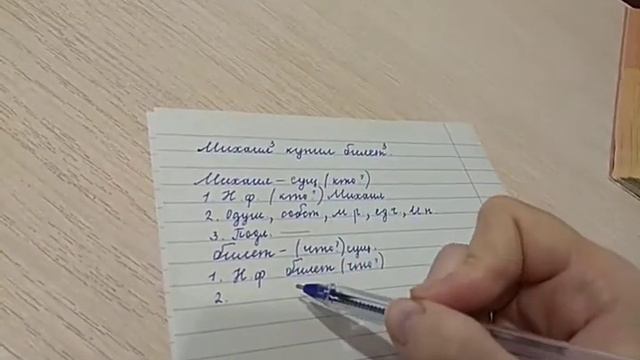 Михаил³ купил билет³.
Михаил – сущ. (кто?)
1. Н. ф. (кто?) Михаил
2. Одуш., собст., м. р., ед. ч., И. п.
3. Подл.
билет – (что?) сущ.
1. Н. ф. билет (что?)
2.